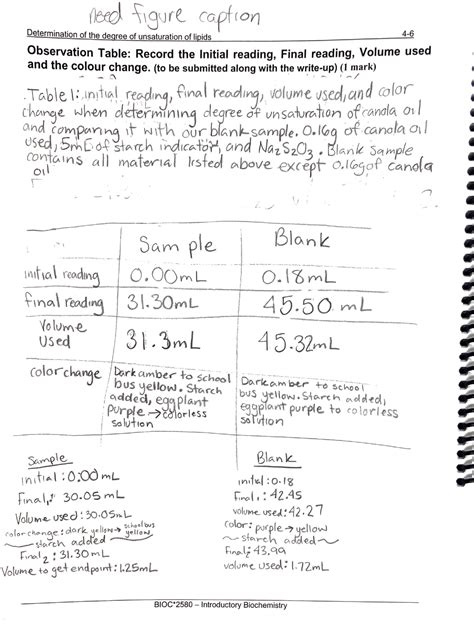 need figure caption
Determination of the degree of unsaturation of lipids 4-6
Observation Table: Record the Initial reading, Final reading, Volume used
and the colour change. (to be submitted along with the write-up) (1 mark)
Table 1: initial reading, final reading, volume used, and color
change when determining degree of unsaturation of canola oil
and comparing it with our blank sample. 0.16g of canola oil
used, 5mL of starch indicator, and Na2S2O3. Blank sample
contains all material listed above except 0.16g of canola
oil
Sample Blank
initial reading 0.00mL 0.18mL
final reading 31.30mL 45.50 mL
Volume Used 31.3mL 45.32mL
color change
Dark amber to school
bus yellow. Starch
added, eggplant
Purple → colorless
solution
Dark amber to school
bus yellow. Starch added,
eggplant purple to colorless
solution
Sample
initial: 0.00 mL
Final1: 30.05mL
Volume used: 30.05mL
color change: dark yellow → school bus yellow
~ starch added ~
Final2: 31.30mL
Volume to get endpoint: 1.25mL
Blank
initial: 0.18
Final1: 42.45
volume used: 42.27
color: purple → yellow
~ starch added ~
Final2: 43.99
volume used: 1.72mL
BIOC*2580 – Introductory Biochemistry